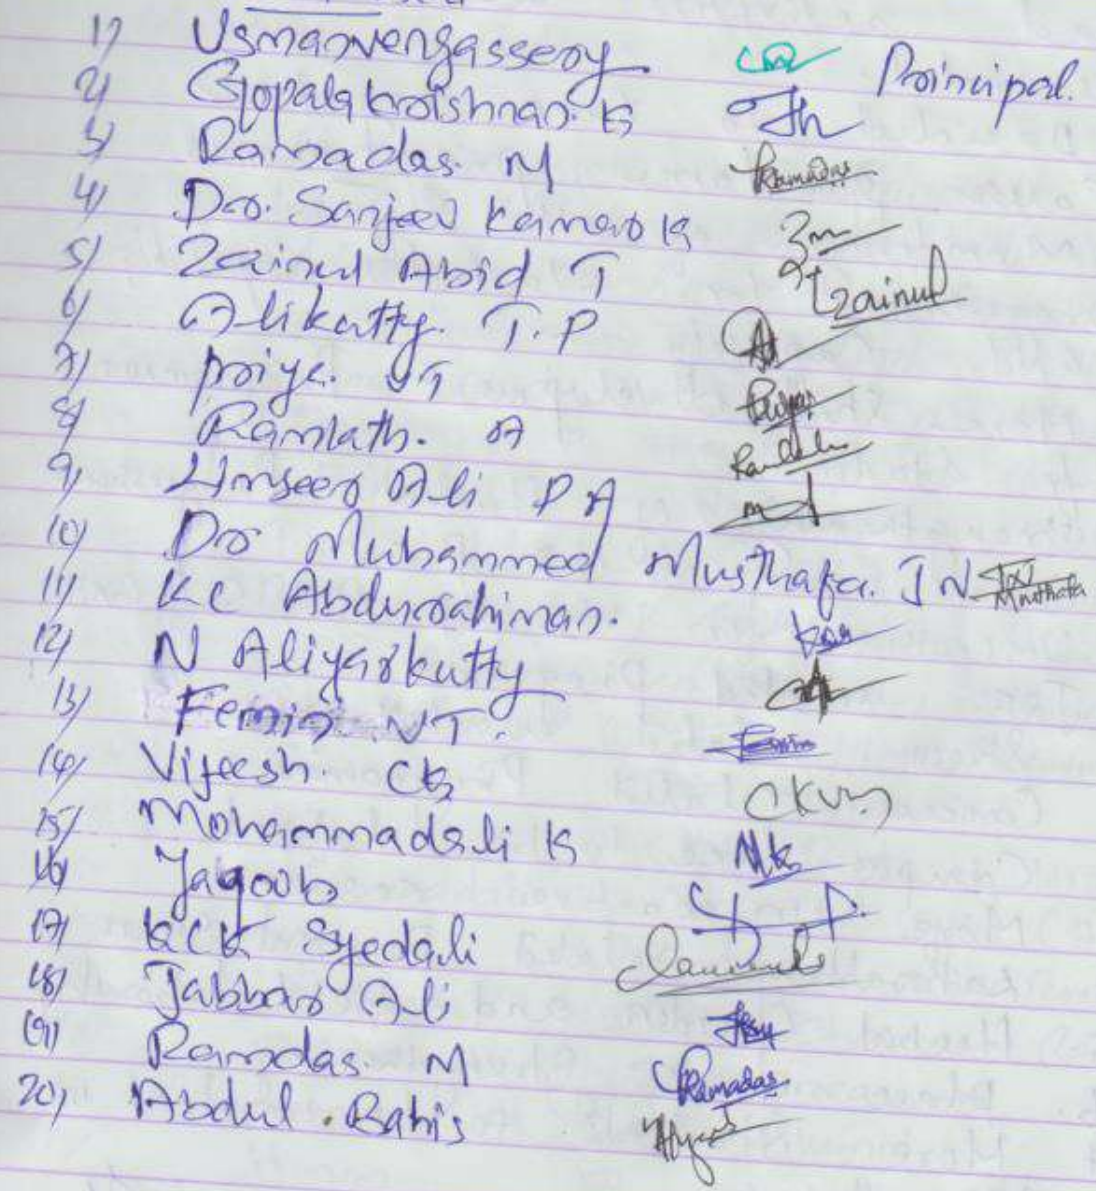 1) Usmanvengassery Principal.
2) Gopalakrishnan. K
3) Ramadas. M Ramadas
4) Dr. Sanjeev Kumar K
5) Zainul Abid T Zainul
6) Alikutty. T.P
7) Priya. VT Priya
8) Ramlath. A
9) Umseer Ali P A
10) Dr Muhammed Musthafa. J N Musthafa
11) KC Abdurahiman.
12) N Aliyarkutty
13) Femina. NT.
14) Vijeesh CK
15) Mohammadali K MK
16) Yaqoob
17) KCK Syedali
18) Jabbar Ali
19) Ramdas M Ramadas
20) Abdul . Bahis